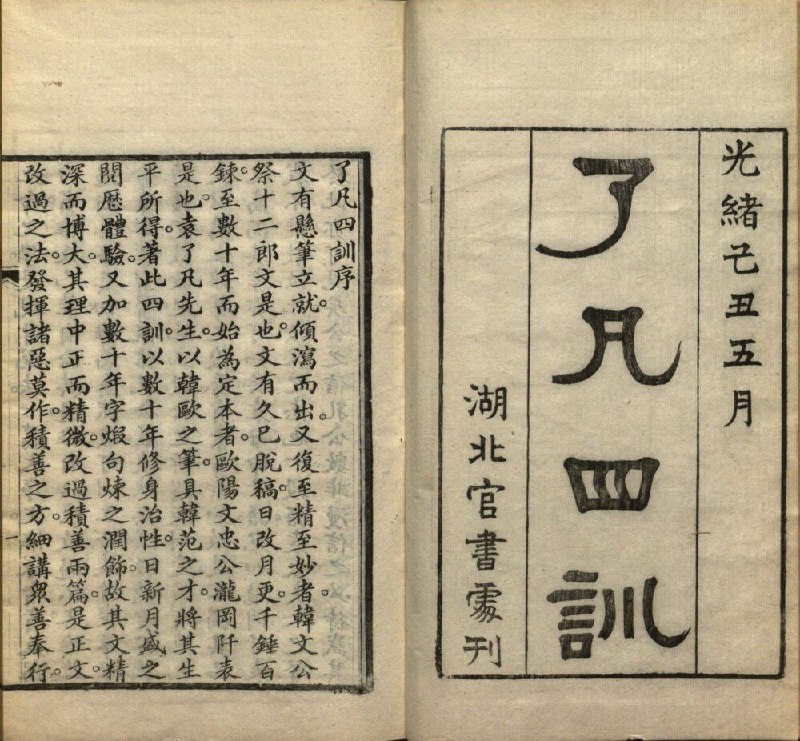 光緒己丑五月
了凡四訓
湖北官書處刊
了凡四訓序
文有懸筆立就。傾瀉而出。又復至精至妙者。韓文公
祭十二郎文是也。文有久已脫稿。日改月更。千錘百
鍊。至數十年而始為定本者。歐陽文忠公瀧岡阡表
是也。袁了凡先生以韓歐之筆。具韓范之才。將其生
平所得。著此四訓。以數十年修身治性。日新月盛之
閱歷體驗。又加數十年字煅句煉之潤飾。故其文精
深而博大。其理中正而精微。改過積善兩篇。是正文
改過之法。發揮諸惡莫作。積善之方。細講眾善奉行。
一